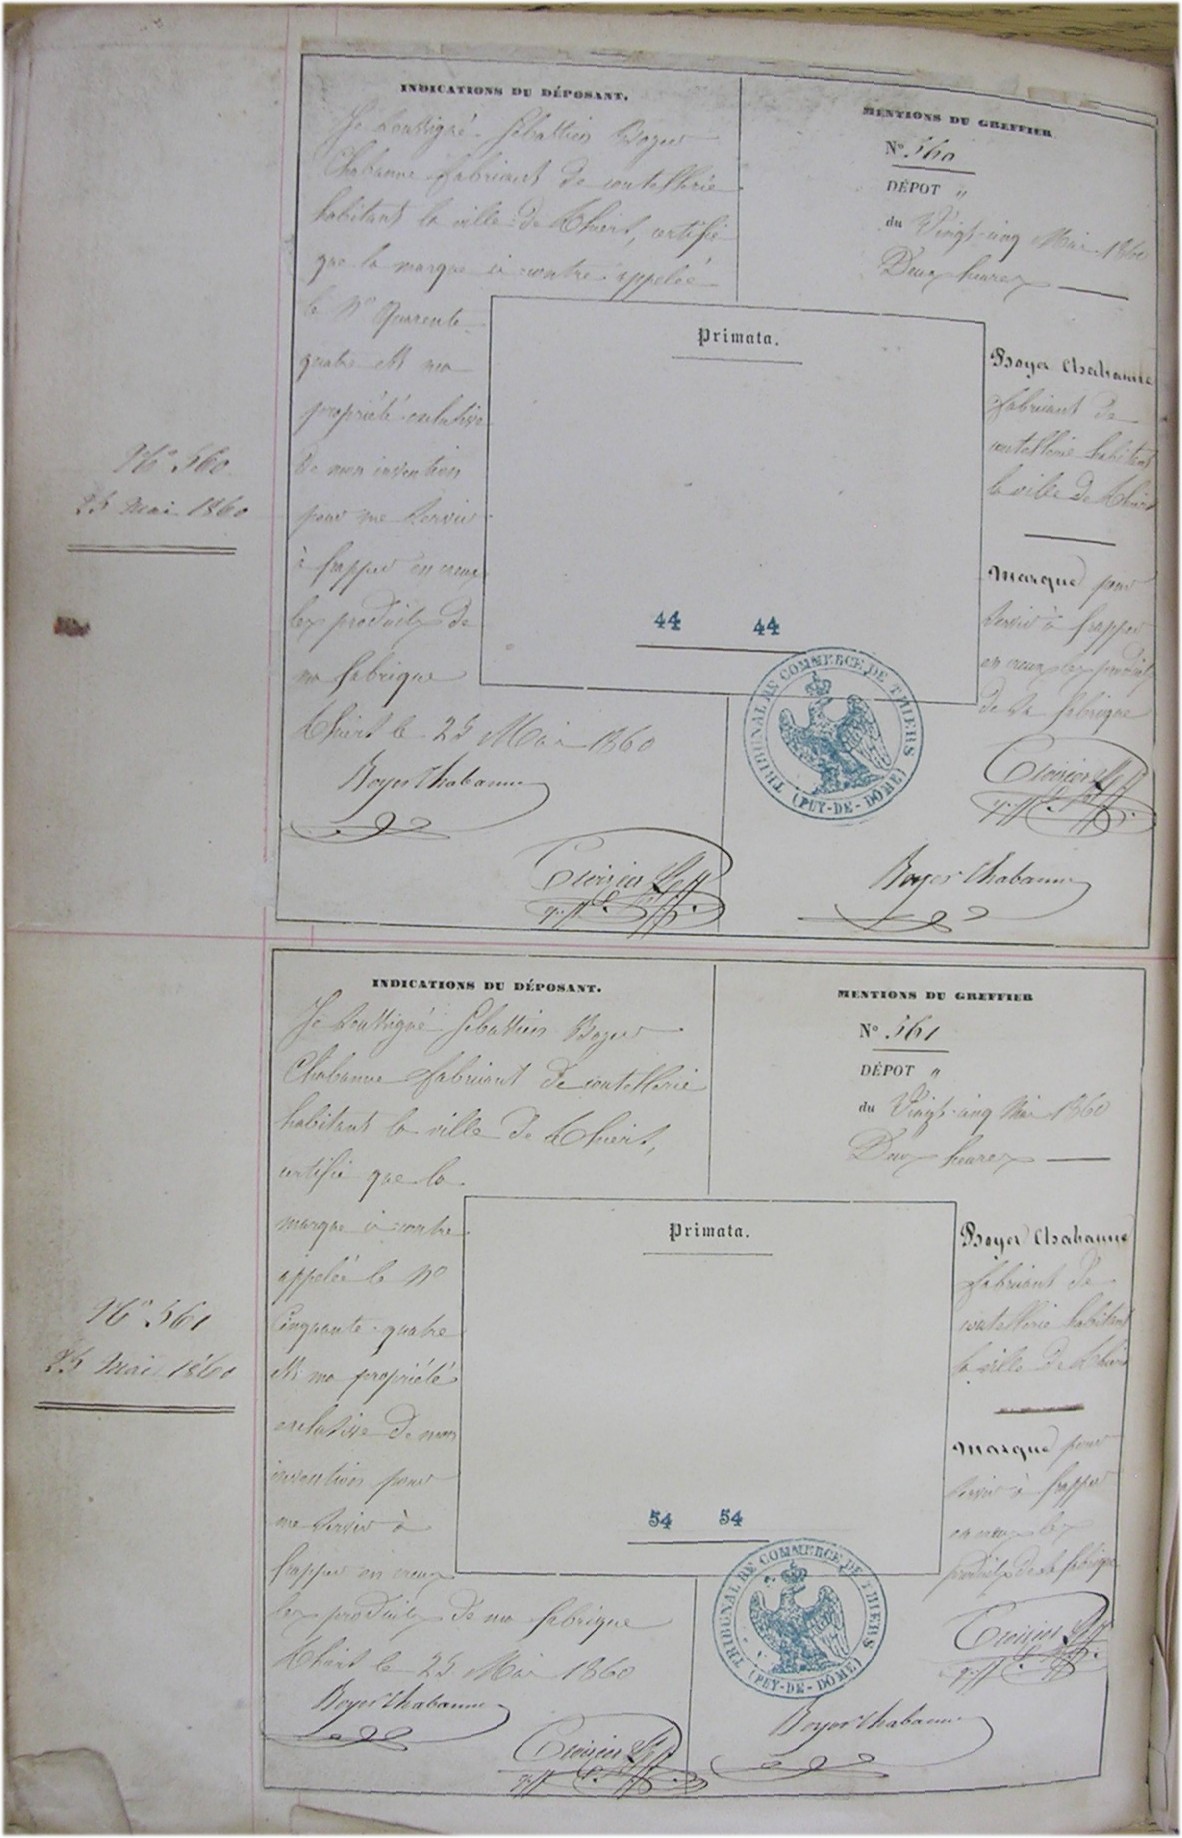 INDICATIONS DU DÉPOSANT.
Je soussigné Sébastien Boyer
Chabanne fabricant de coutellerie
habitant la ville de Thiers, certifie
que la marque ci contre appelée
le N° Quarente
quatre est ma
propriété exclusive
de mon invention
pour me servir
à frapper en creux
les produits de
ma fabrique
Thiers le 25 Mai 1860
Boyer Chabanne
MENTIONS DU GREFFIER
N° 560
DÉPOT "
du Vingt-cinq Mai 1860
Deux heures
Primata.
44 44
Boyer Chabanne
fabricant de
coutellerie habitant
la ville de Thiers
Marque pour
servir à frapper
en creux les produits
de sa fabrique
TRIBUNAL DE COMMERCE DE THIERS
(PUY-DE-DÔME)
Boyer Chabanne
N° 560
25 Mai 1860
INDICATIONS DU DÉPOSANT.
Je soussigné Sébastien Boyer
Chabanne fabricant de coutellerie
habitant la ville de Thiers,
certifie que la
marque ci contre
appelée le N°
Cinquante-quatre
est ma propriété
exclusive de mon
invention pour
me servir à
frapper en creux
les produits de ma fabrique
Thiers le 25 Mai 1860
Boyer Chabanne
MENTIONS DU GREFFIER
N° 561
DÉPOT "
du Vingt-cinq Mai 1860
Deux heures
Primata.
54 54
Boyer Chabanne
fabricant de
coutellerie habitant
la ville de Thiers
Marque pour
servir à frapper
en creux les
produits de sa fabrique
TRIBUNAL DE COMMERCE DE THIERS
(PUY-DE-DÔME)
Boyer Chabanne
N° 561
25 Mai 1860